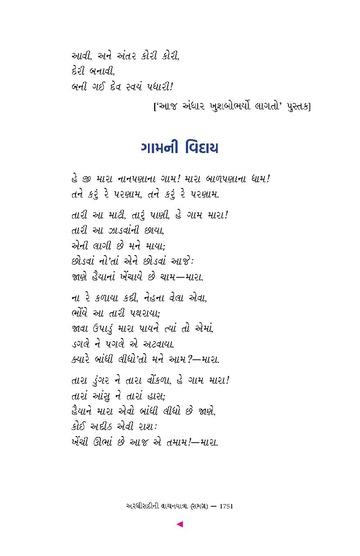 આવી, અને અંતર કોરી કોરી,
દેરી બનાવી,
બની ગઈ દેવ સ્વયં પધારી!
['આજ અંધાર ખુશબોભર્યો લાગતો' પુસ્તક]
ગામની વિદાય
હે જી મારા નાનપણાના ગામ! મારા બાળપણાના ધામ!
તને કરું રે પરણામ, તને કરું રે પરણામ.
તારી આ માટી, તારું પાણી, હે ગામ મારા!
તારી આ ઝાડવાંની છાયા,
એની લાગી છે મને માયા;
છોડવાં નો'તાં એને છોડવાં આજે:
જાણે હૈયાનાં ખેંચાયે છે ચામ—મારા.
ના રે કળાયા કદી, નેહના વેલા એવા,
ભોંયે આ તારી પથરાયા;
જાવા ઉપાડું મારા પાયને ત્યાં તો એમાં,
ડગલે ને પગલે એ અટવાયા.
ક્યારે બાંધી લીધો'તો મને આમ?—મારા.
તારા ડુંગર ને તારા વોંકળા, હે ગામ મારા!
તારાં આંસુ ને તારાં હાસ;
હૈયાને મારા એવો બાંધી લીધો છે જાણે,
કોઈ અદીઠ એવી રાશ:
ખેંચી ઊભાં છે આજ એ તમામ!—મારા.
અરધીસદીની વાચનયાત્રા (સમગ્ર) — 1751